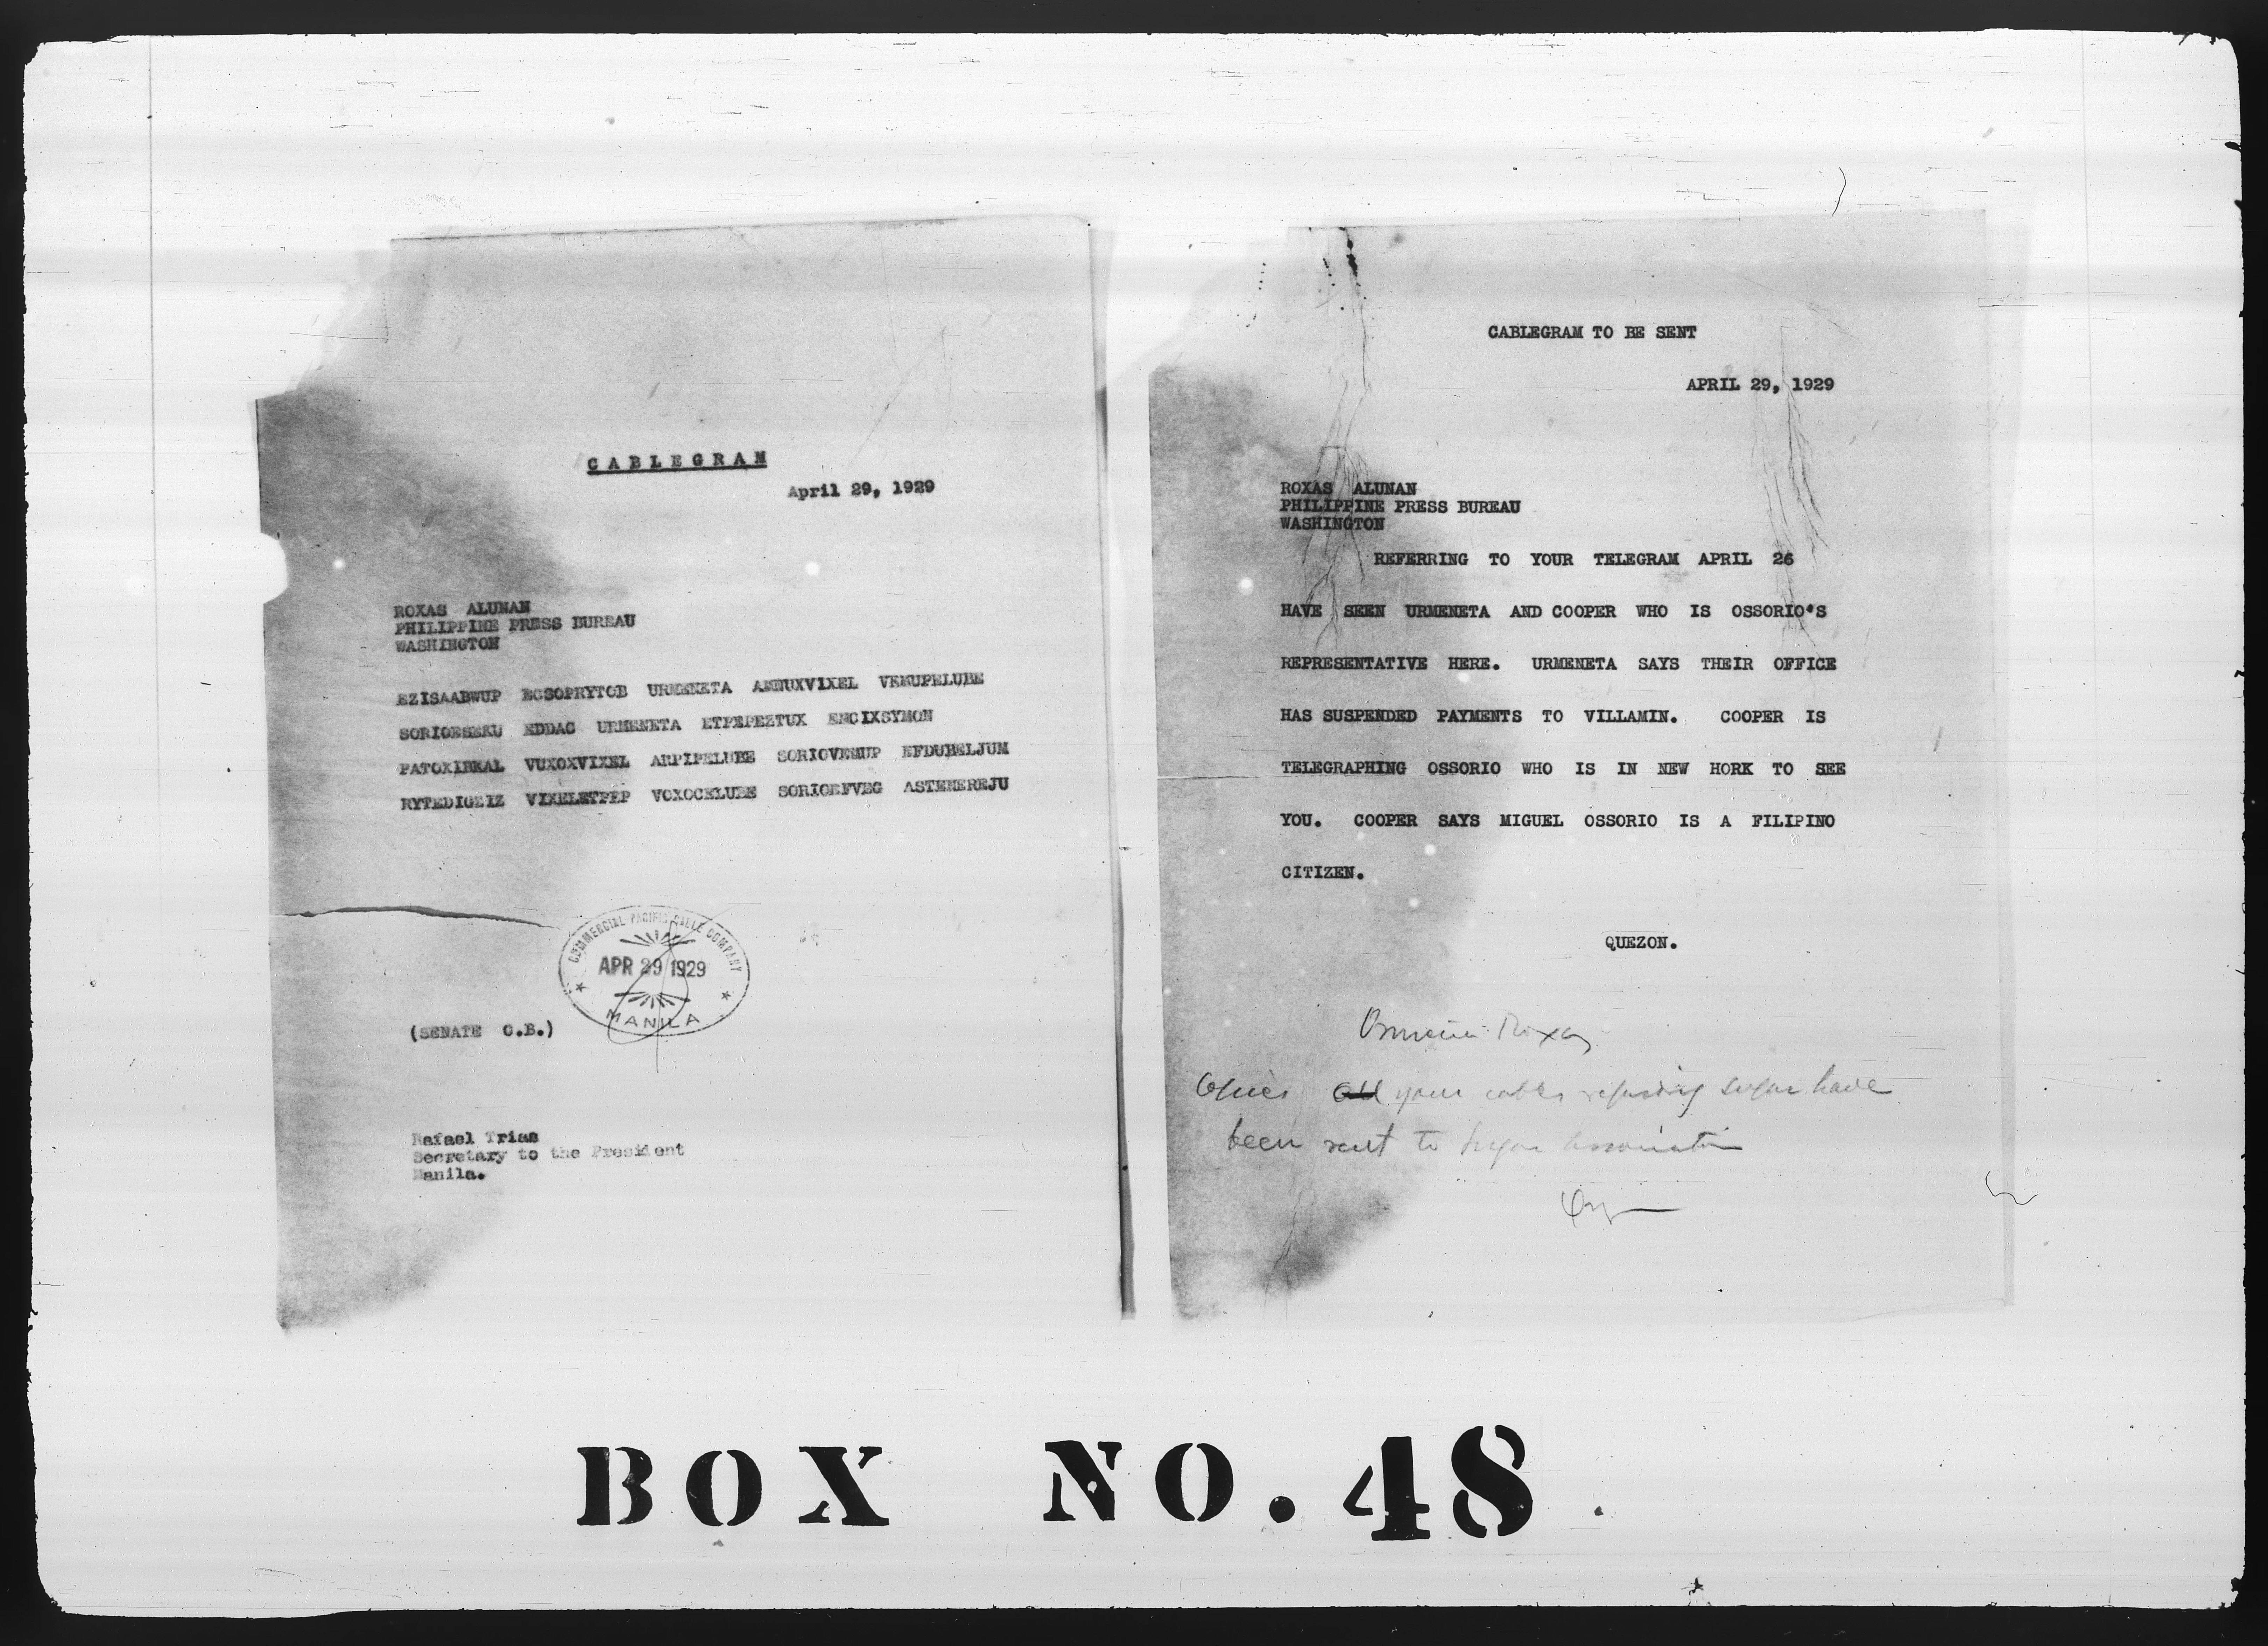 CABLEGRAM
April 29, 1929
ROXAS ALUNAN
PHILIPPINE PRESS BUREAU
WASHINGTON
EZISAABWUP ECSOPRYTOB URMENETA AMNUXVIXEL VEMUPELUBE
SORIOESEKU EDDAC URMENETA ETPEPEZTUX ENCIXSYMON
PATOXIBKAL VUXOXVIXEL ARPIPELUBE SORIOVEMUP EFDUBELJUM
RYTEDIGEIZ VIXELETPEP VOXOCELUBE SORIOEFVEG ASTEMEREJU
COMMERCIAL PACIFIC CABLE COMPANY
APR 29 1929
MANILA
(SENATE C.B.)
Rafael Trias
Secretary to the President
Manila.
CABLEGRAM TO BE SENT
APRIL 29, 1929
ROXAS ALUNAN
PHILIPPINE PRESS BUREAU
WASHINGTON
REFERRING TO YOUR TELEGRAM APRIL 26
HAVE SEEN URMENETA AND COOPER WHO IS OSSORIO'S
REPRESENTATIVE HERE. URMENETA SAYS THEIR OFFICE
HAS SUSPENDED PAYMENTS TO VILLAMIN. COOPER IS
TELEGRAPHING OSSORIO WHO IS IN NEW HORK TO SEE
YOU. COOPER SAYS MIGUEL OSSORIO IS A FILIPINO
CITIZEN.
QUEZON.
Roxas
Copies all your cables regarding sugar have
been sent to Sugar Association
BOX NO. 48